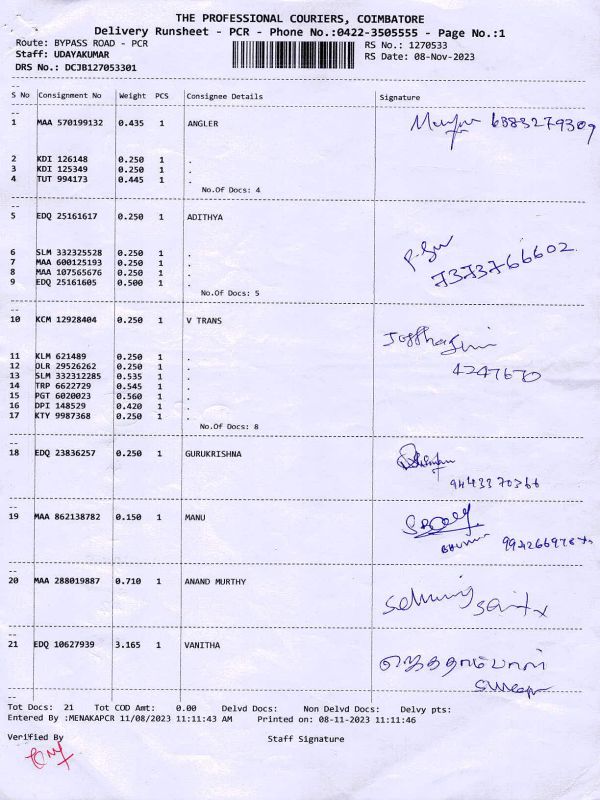 THE PROFESSIONAL COURIERS, COIMBATORE
Delivery Runsheet - PCR - Phone No.:0422-3505555 - Page No.:1
Route: BYPASS ROAD - PCR RS No.: 1270533
Staff: UDAYAKUMAR RS Date: 08-Nov-2023
DRS No.: DCJB127053301
S No Consignment No Weight PCS Consignee Details Signature
1 MAA 570199132 0.435 1 ANGLER 6383279309
2 KDI 126148 0.250 1 .
3 KDI 125349 0.250 1 .
4 TUT 994173 0.445 1 .
No.Of Docs: 4
5 EDQ 25161617 0.250 1 ADITHYA
6 SLM 332325528 0.250 1 .
7 MAA 600125193 0.250 1 .
8 MAA 107565676 0.250 1 .
9 EDQ 25161605 0.500 1 .
7373766602
No.Of Docs: 5
10 KCM 12928404 0.250 1 V TRANS
11 KLM 621489 0.250 1 .
12 DLR 29526262 0.250 1 .
13 SLM 332312285 0.535 1 .
4247670
14 TRP 6622729 0.545 1 .
15 PGT 6020023 0.560 1 .
16 DPI 148529 0.420 1 .
17 KTY 9987368 0.250 1 .
No.Of Docs: 8
18 EDQ 23836257 0.250 1 GURUKRISHNA
9443370366
19 MAA 862138782 0.150 1 MANU
20 MAA 288019887 0.710 1 ANAND MURTHY
21 EDQ 10627939 3.165 1 VANITHA
Tot Docs: 21 Tot COD Amt: 0.00 Delvd Docs: Non Delvd Docs: Delvy pts:
Entered By :MENAKAPCR 11/08/2023 11:11:43 AM Printed on: 08-11-2023 11:11:46
Verified By Staff Signature